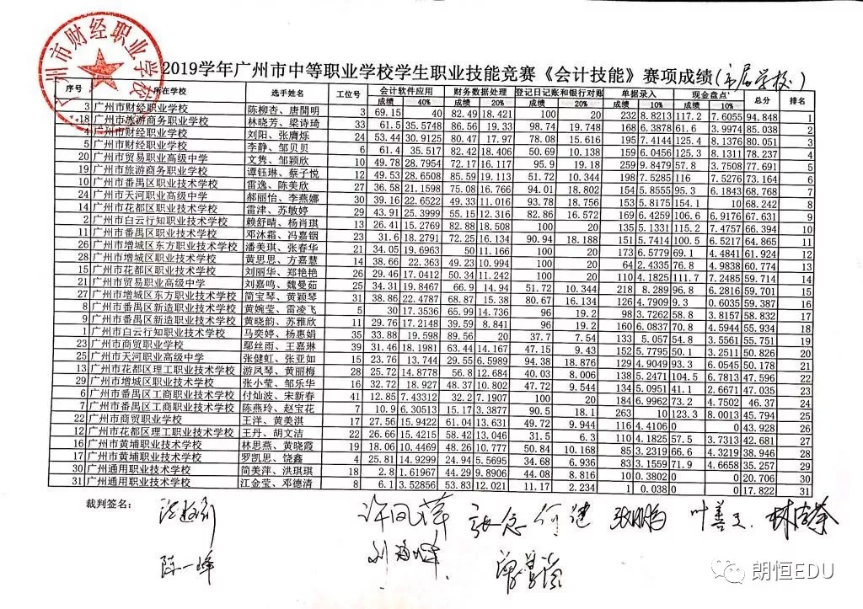 2019学年广州市中等职业学校学生职业技能竞赛《会计技能》赛项成绩(市属学校)
序号 所在学校 选手姓名 工位号 会计软件应用 财务数据处理 登记日记账和银行对账 单据录入 现金盘点 总分 排名
成绩 40% 成绩 20% 成绩 20% 成绩 10% 成绩 10%
3 广州市财经职业学校 陈柳杏、唐閒明 3 69.15 40 82.49 18.421 100 20 232 8.8213 117.2 7.6055 94.848 1
18 广州市旅游商务职业学校 林晓芳、梁诗琦 33 61.5 35.5748 86.56 19.33 98.74 19.748 168 6.3878 61.6 3.9974 85.038 2
4 广州市财经职业学校 刘阳、张膺烁 24 53.44 30.9121 80.47 17.97 78.08 15.616 195 7.4144 125.4 8.1376 80.051 3
5 广州市财经职业学校 李静、邹贝贝 6 61.4 35.517 82.42 18.406 50.69 10.138 159 6.0456 125.3 8.1311 78.237 4
20 广州市贸易职业高级中学 文隽、邹颖欣 10 49.78 28.7954 72.17 16.117 95.9 19.18 259 9.8479 57.8 3.7508 77.691 5
19 广州市旅游商务职业学校 谭钰琳、蔡子悦 12 49.53 28.6508 85.59 19.113 51.72 10.344 198 7.5285 116 7.5276 73.164 6
10 广州市番禺区职业技术学校 雷逸、陈美欣 27 36.58 21.1598 75.08 16.766 94.01 18.802 154 5.8555 95.3 6.1843 68.768 7
24 广州市天河职业高级中学 郝丽怡、李燕娜 30 39.16 22.6522 49.33 11.016 93.78 18.756 153 5.8175 154.1 10 68.242 8
14 广州市花都区职业技术学校 雷津、苏敏婷 29 43.91 25.3999 55.15 12.316 82.86 16.572 169 6.4259 106.6 6.9176 67.631 9
2 广州市白云行知职业技术学校 赖舒晴、杨肖琪 13 26.41 15.2769 82.88 18.508 100 20 135 5.1331 115.2 7.4757 66.394 10
11 广州市番禺区职业技术学校 邓沐霜、冯嘉铟 23 31.6 18.2791 72.25 16.134 90.94 18.188 151 5.7414 100.5 6.5217 64.865 11
26 广州市增城区东方职业技术学校 潘美琪、张春华 21 34.05 19.6963 50 11.166 100 20 173 6.5779 69.1 4.4841 61.924 12
28 广州市增城区职业技术学校 黄思思、方嘉慧 14 38.66 22.363 49.23 10.994 100 20 64 2.4335 76.8 4.9838 60.774 13
15 广州市花都区职业技术学校 刘丽华、郑艳艳 26 29.46 17.0412 50.34 11.242 100 20 110 4.1825 111.7 7.2485 59.714 14
21 广州市贸易职业高级中学 刘嘉鸣、魏曼茹 25 34.31 19.8467 66.9 14.94 51.72 10.344 218 8.289 96.8 6.2816 59.701 15
27 广州市增城区东方职业技术学校 简宝琴、黄颖琴 31 38.86 22.4787 68.87 15.38 80.67 16.134 126 4.7909 9.3 0.6035 59.387 16
8 广州市番禺区新造职业技术学校 黄婉莹、雷凌飞 5 30 17.3536 65.99 14.736 96 19.2 98 3.7262 58.8 3.8157 58.832 17
9 广州市番禺区新造职业技术学校 黄晓韵、苏雅欣 11 29.76 17.2148 39.59 8.841 96 19.2 160 6.0837 70.8 4.5944 55.934 18
1 广州市白云行知职业技术学校 马奕婷、杨惠娟 35 33.88 19.598 89.56 20 37.7 7.54 133 5.057 54.8 3.5561 55.751 19
23 广州市商贸职业学校 鄢丝雨、王嘉琳 39 31.46 18.1981 63.44 14.167 47.15 9.43 152 5.7795 50.1 3.2511 50.826 20
25 广州市天河职业高级中学 张健虹、张亚如 15 23.76 13.744 29.55 6.5989 94.38 18.876 130 4.9049 93.3 6.0545 50.178 21
13 广州市花都区理工职业技术学校 游凤琴、黄丽梅 28 25.72 14.8778 56.8 12.684 40.03 8.006 138 5.2471 104.5 6.7813 47.596 22
29 广州市增城区职业技术学校 张小莹、邹乐华 16 32.72 18.927 48.37 10.802 47.72 9.544 134 5.0951 41.1 2.6671 47.035 23
6 广州市番禺区工商职业技术学校 付灿波、宋新春 41 12.85 7.43312 32.2 7.1907 100 20 184 6.9962 73.2 4.7502 46.37 24
7 广州市番禺区工商职业技术学校 陈燕玲、赵宝花 7 10.9 6.30513 15.17 3.3877 90.5 18.1 263 10 123.3 8.0013 45.794 25
22 广州市商贸职业学校 王洋、黄美淇 17 27.56 15.9422 61.04 13.631 49.72 9.944 116 4.4106 0 0 43.928 26
12 广州市花都区理工职业技术学校 王丹、胡文洁 22 26.66 15.4215 58.42 13.046 31.5 6.3 110 4.1825 57.5 3.7313 42.681 27
16 广州市黄埔职业技术学校 林思燕、黄晓霞 19 18.06 10.4469 48.26 10.777 50.84 10.168 85 3.2319 66.6 4.3219 38.946 28
17 广州市黄埔职业技术学校 罗凯思、饶鑫 4 25.81 14.9299 24.94 5.5695 34.68 6.936 83 3.1559 71.9 4.6658 35.257 29
30 广州通用职业技术学校 简美萍、洪琪琪 18 2.8 1.61967 44.29 9.8906 44.08 8.816 10 0.3802 0 0 20.706 30
31 广州通用职业技术学校 江金莹、邓德清 8 6.1 3.52856 53.83 12.021 11.17 2.234 1 0.038 0 0 17.822 31
裁判签名：
陈一峰
朗恒EDU
广州市财经职业学校